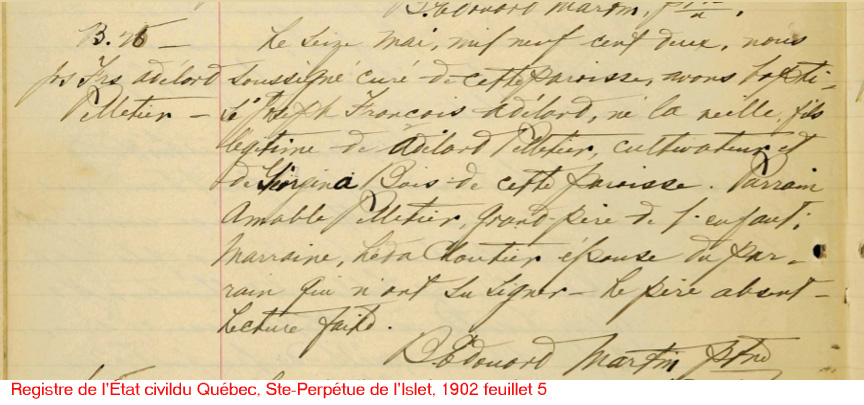 B. Edouard Martin, ptre
B. 26 – Le seize mai, mil neuf cent deux, nous
Jos Frs Adélord soussigné curé de cette paroisse, avons bapti-
Pelletier – sé Joseph François Adélord, né la veille, fils
légitime de Adélord Pelletier, cultivateur et
de Georgina Bois de cette paroisse. Parrain
Amable Pelletier, grand-père de l'enfant;
Marraine, Léda Cloutier épouse du par-
rain qui n'ont su signer – Le père absent –
Lecture faite.
B. Edouard Martin ptre
Registre de l'État civildu Québec, Ste-Perpétue de l'Islet, 1902 feuillet 5